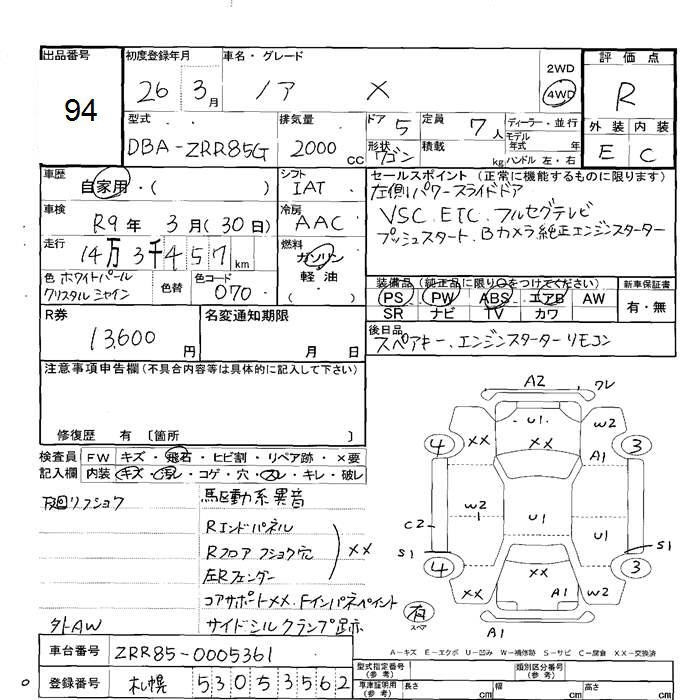 出品番号
94
初度登録年月
26 3月
車名・グレード
ノア X
2WD
4WD
評価点
R
外装 内装
E C
型式
DBA-ZRR85G
排気量
2000 CC
ドア 5
形状 ワゴン
定員 7人
積載 kg
ディーラー・並行
モデル年式 年
ハンドル 左・右
車歴
自家用・( )
シフト
IAT
車検
R9年 3月(30日)
冷房
AAC
走行
14万3千457km
燃料
ガソリン
軽油
( )
色 ホワイトパール
クリスタルシャイン
色替
色コード
070
セールスポイント (正常に機能するものに限ります)
左側パワースライドドア
VSC.ETC.フルセグテレビ
プッシュスタート.Bカメラ純正エンジンスターター
装備品(純正品に限り○をつけてください)
PS PW ABS エアB AW
SR ナビ TV カワ
新車保証書
有・無
R券
13,600円
名変通知期限
月 日
後日品
スペアキー、エンジンスターターリモコン
注意事項申告欄(不具合内容等は具体的に記入して下さい)
修復歴 有 〔箇所 〕
検査員
記入欄
FW キズ・飛石・ヒビ割・リペア跡・×要
内装 キズ・汚レ・コゲ・穴・スレ・キレ・破レ
下廻リフショウ
駆動系異音
Rエンドパネル
Rフロアフショク穴
左Rフェンダー
××
コアサポート××.Fインパネペイント
外AW
サイドシルクランプ跡赤
A2
ワレ
U1
××
××
W2
4
3
A1
W2
U1
U1
C2
S1
S1
4
3
××
××
A1
W2
有
スペア
A1
A-キズ E-エクボ U-凹み W-補修跡 S-サビ C-腐食 ××-交換済
車台番号
ZRR85-0005361
登録番号
札幌 530 5 3562
型式指定番号
(参考)
類別区分番号
(参考)
車検証明用
(参考)
長さ cm
幅 cm
高さ cm